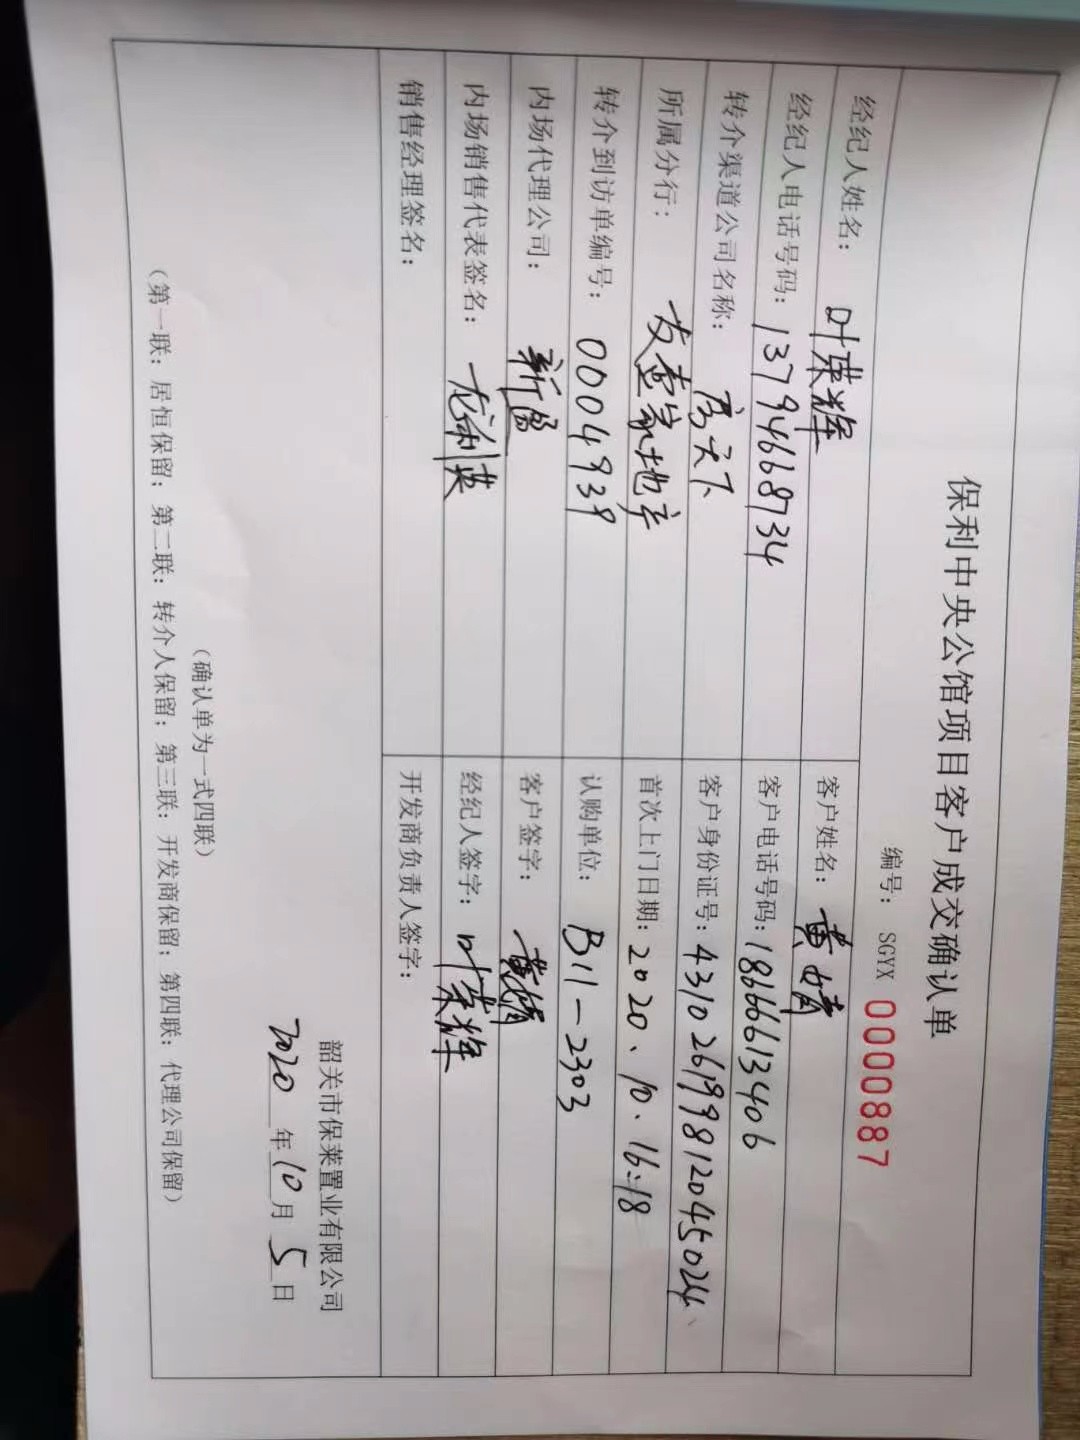 保利中央公馆项目客户成交确认单
编号： SGYX 0000887
经纪人姓名： 叶荣辉 客户姓名： 黄婧
经纪人电话号码： 13794668734 客户电话号码： 18666613406
转介渠道公司名称： 房天下 客户身份证号： 431026199812045024
所属分行： 安壹家地产 首次上门日期： 2020、10、16:18
转介到访单编号： 0004939 认购单位： B11-2303
内场代理公司： 新居 客户签字： 黄婧
内场销售代表签名： 龙利英 经纪人签字： 叶荣辉
销售经理签名： 开发商负责人签字：
韶关市保莱置业有限公司
2020 年 10 月 5 日
（确认单为一式四联）
（第一联：居恒保留；第二联：转介人保留；第三联：开发商保留；第四联：代理公司保留）